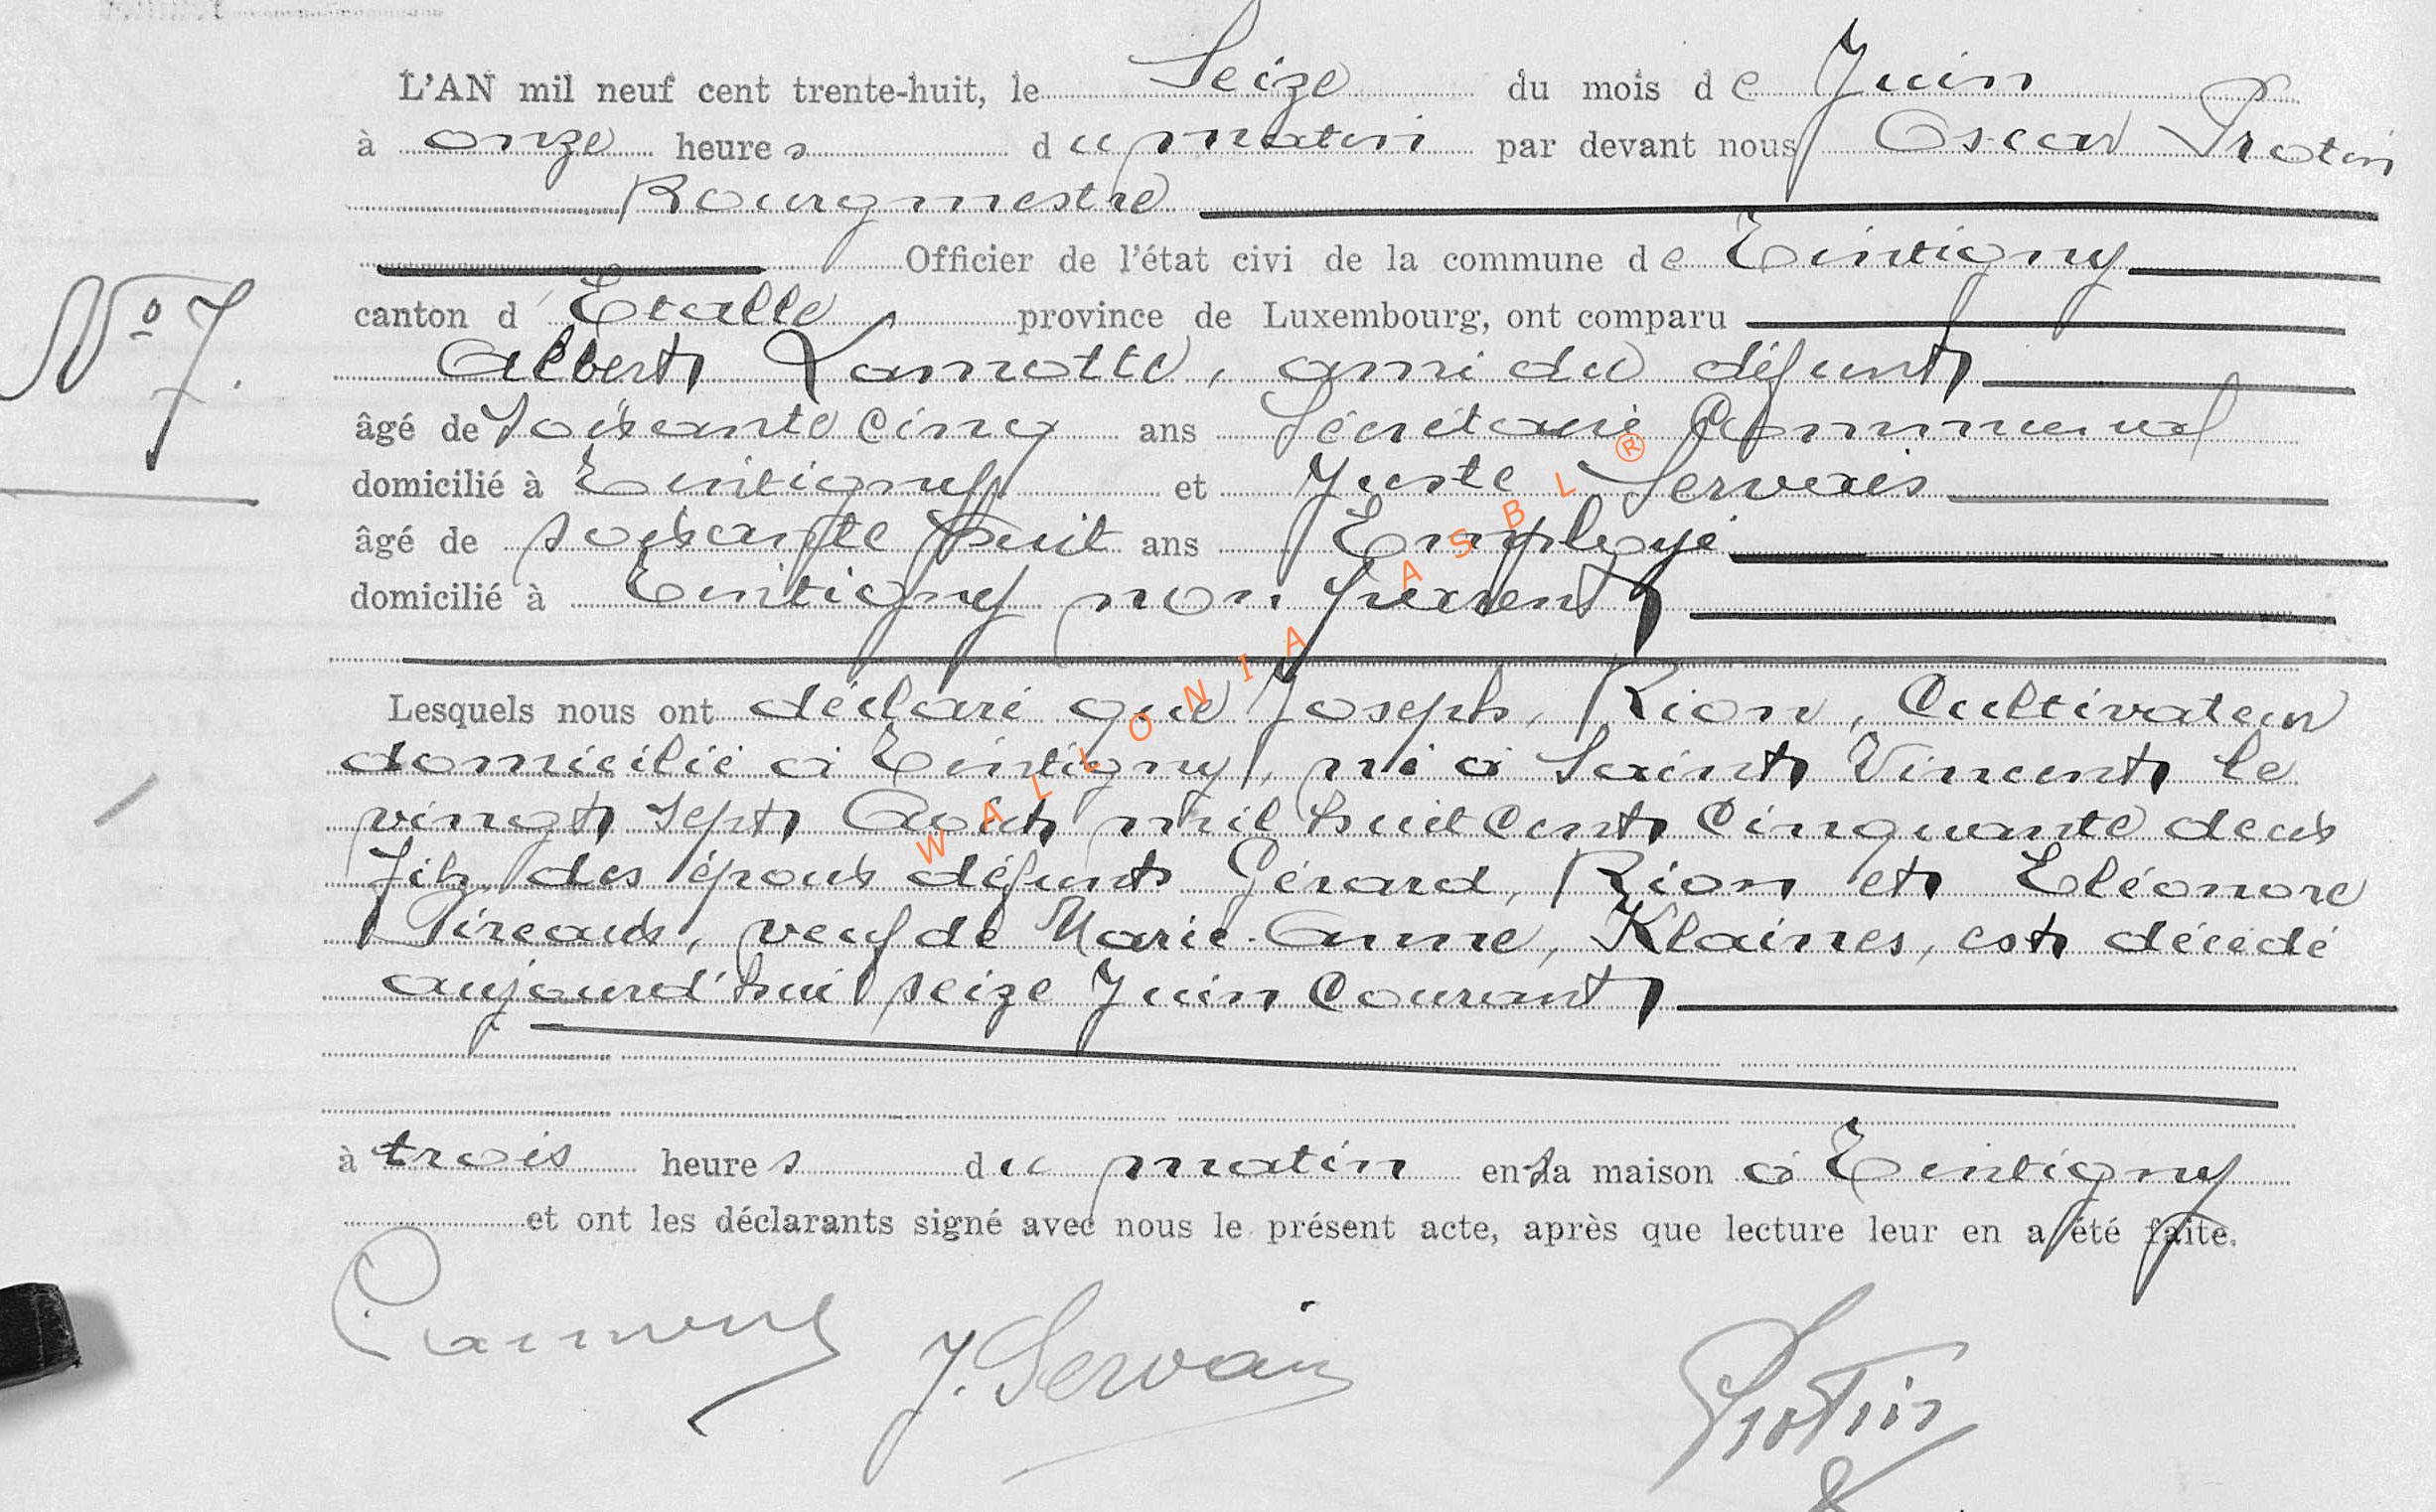 L'AN mil neuf cent trente-huit, le Seize du mois de Juin
à onze heures du matin par devant nous Oscar Protin
Bourgmestre
Officier de l'état civi de la commune de Tintigny
N° 7.
canton d'Etalle province de Luxembourg, ont comparu
Albert Lamotte, ami du défunt
âgé de soixante cinq ans Secrétaire Communal
domicilié à Tintigny et Juste Servais
âgé de soixante huit ans Employé
domicilié à Tintigny non parent
Lesquels nous ont déclaré que Joseph, Rion, Cultivateur
domicilié à Tintigny, né à Saint Vincent le
vingt sept Août mil huit cent cinquante deux
fils des époux défunts Gérard, Rion et Eléonore
Pireaux, veuf de Marie-Anne, Klaines, est décédé
aujourd'hui seize Juin Courant
à trois heures du matin en sa maison à Tintigny
et ont les déclarants signé avec nous le présent acte, après que lecture leur en a été faite.
J. Servais Protin
WALLONIA ASBL ®